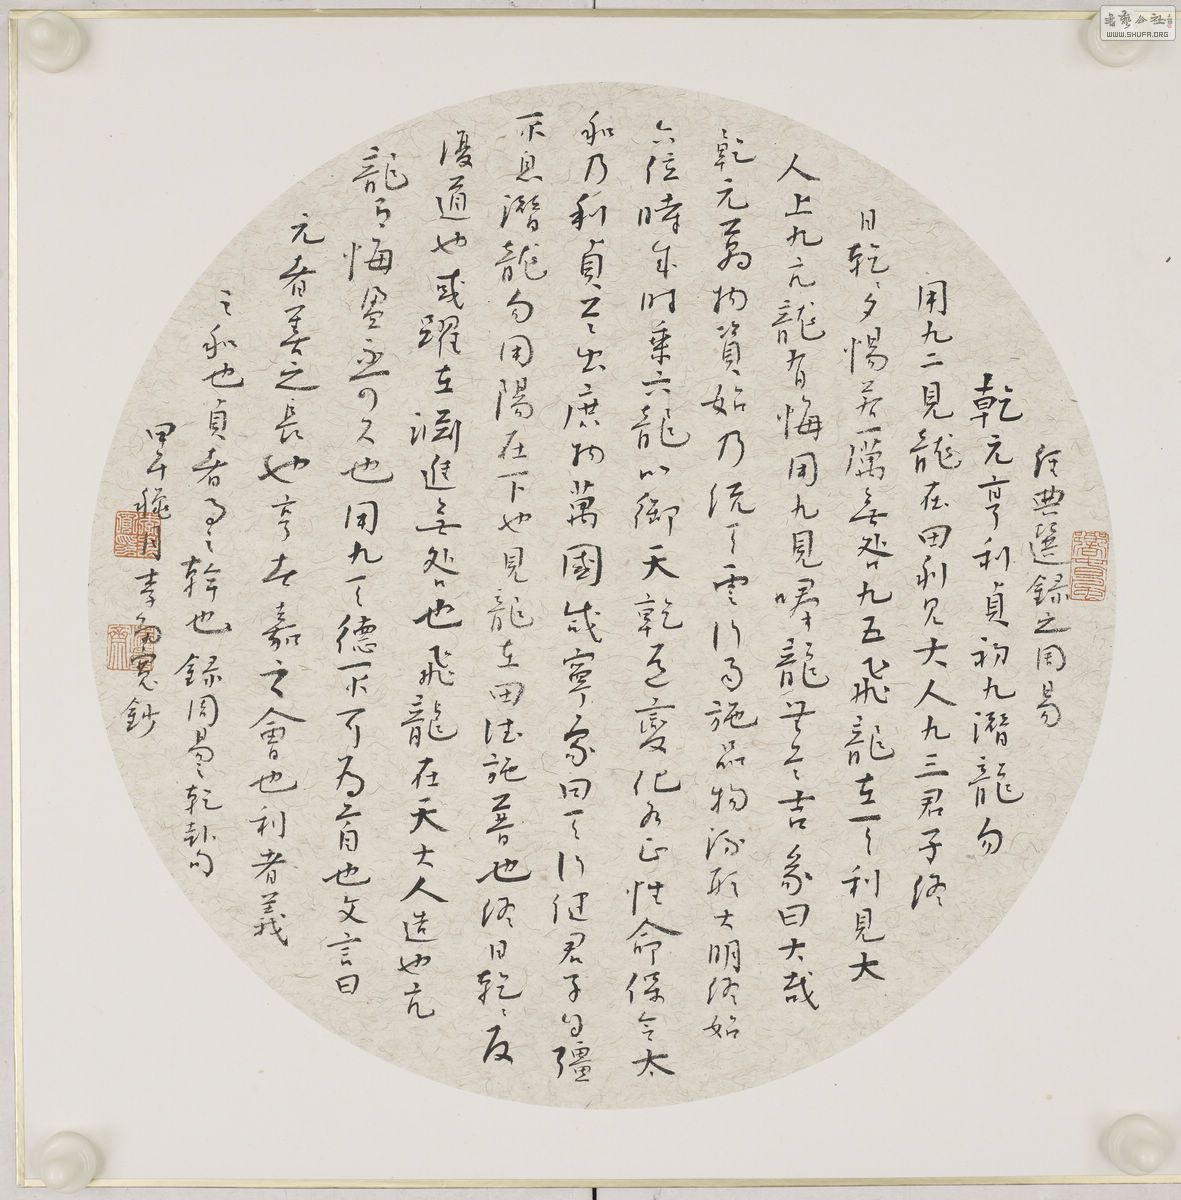 经典選録之周易
乾元亨利貞初九潛龍勿
用九二見龍在田利見大人九三君子終
日乾〻夕惕若厲無咎九五飛龍在天利見大
人上九亢龍有悔用九見羣龍無首吉彖曰大哉
乾元萬物資始乃統天雲行雨施品物流形大明終始
六位時成時乘六龍以御天乾道變化各正性命保合太
和乃利貞首出庶物萬國咸寧象曰天行健君子自彊
不息潛龍勿用陽在下也見龍在田德施普也終日乾〻反
復道也或躍在淵進無咎也飛龍在天大人造也亢
龍有悔盈不可久也用九天德不可为首也文言曰
元者善之長也亨者嘉之會也利者義
之和也貞者事之幹也録周易乾卦句
甲午 月李 寬鈔
WWW.SHUFA.ORG